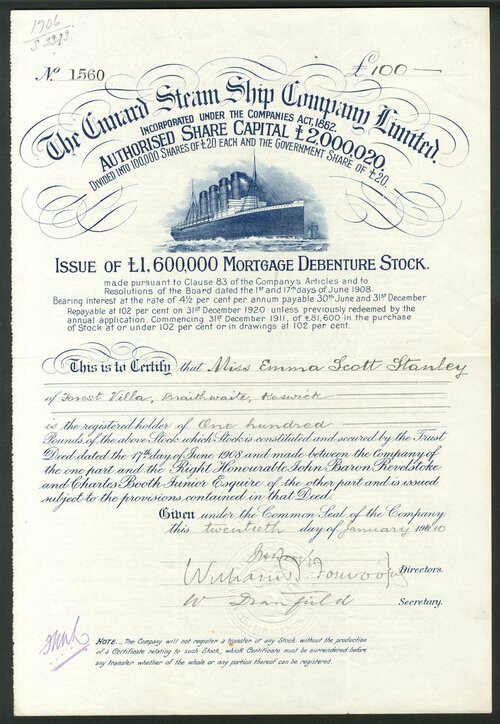 1706
No. 1560
£100—
The Cunard Steam Ship Company Limited.
INCORPORATED UNDER THE COMPANIES ACT, 1862.
AUTHORISED SHARE CAPITAL £2,000,020,
DIVIDED INTO 100,000 SHARES OF £20 EACH AND THE GOVERNMENT SHARE OF £20.
ISSUE OF £1,600,000 MORTGAGE DEBENTURE STOCK.
made pursuant to Clause 83 of the Company's Articles and to
Resolutions of the Board dated the 1st and 17th days of June 1908.
Bearing interest at the rate of 4½ per cent per annum payable 30th June and 31st December
Repayable at 102 per cent on 31st December 1920 unless previously redeemed by the
annual application. Commencing 31st December 1911, of £81,600 in the purchase
of Stock at or under 102 per cent or in drawings at 102 per cent.
This is to Certify that Miss Emma Scott Stanley
of Forest Villa, Braithwaite, Keswick
is the registered holder of One hundred
Pounds of the above Stock which Stock is constituted and secured by the Trust
Deed dated the 17th day of June 1908 and made between the Company of
the one part and the Right Honourable John Baron Revelstoke
and Charles Booth Junior Esquire of the other part and is issued
subject to the provisions contained in that Deed.
Given under the Common Seal of the Company
this twentieth day of January 1910
William B Forwood
Directors.
Secretary.
NOTE._ The Company will not register a transfer of any Stock without the production
of a Certificate relating to such Stock, which Certificate must be surrendered before
any transfer whether of the whole or any portion thereof can be registered.